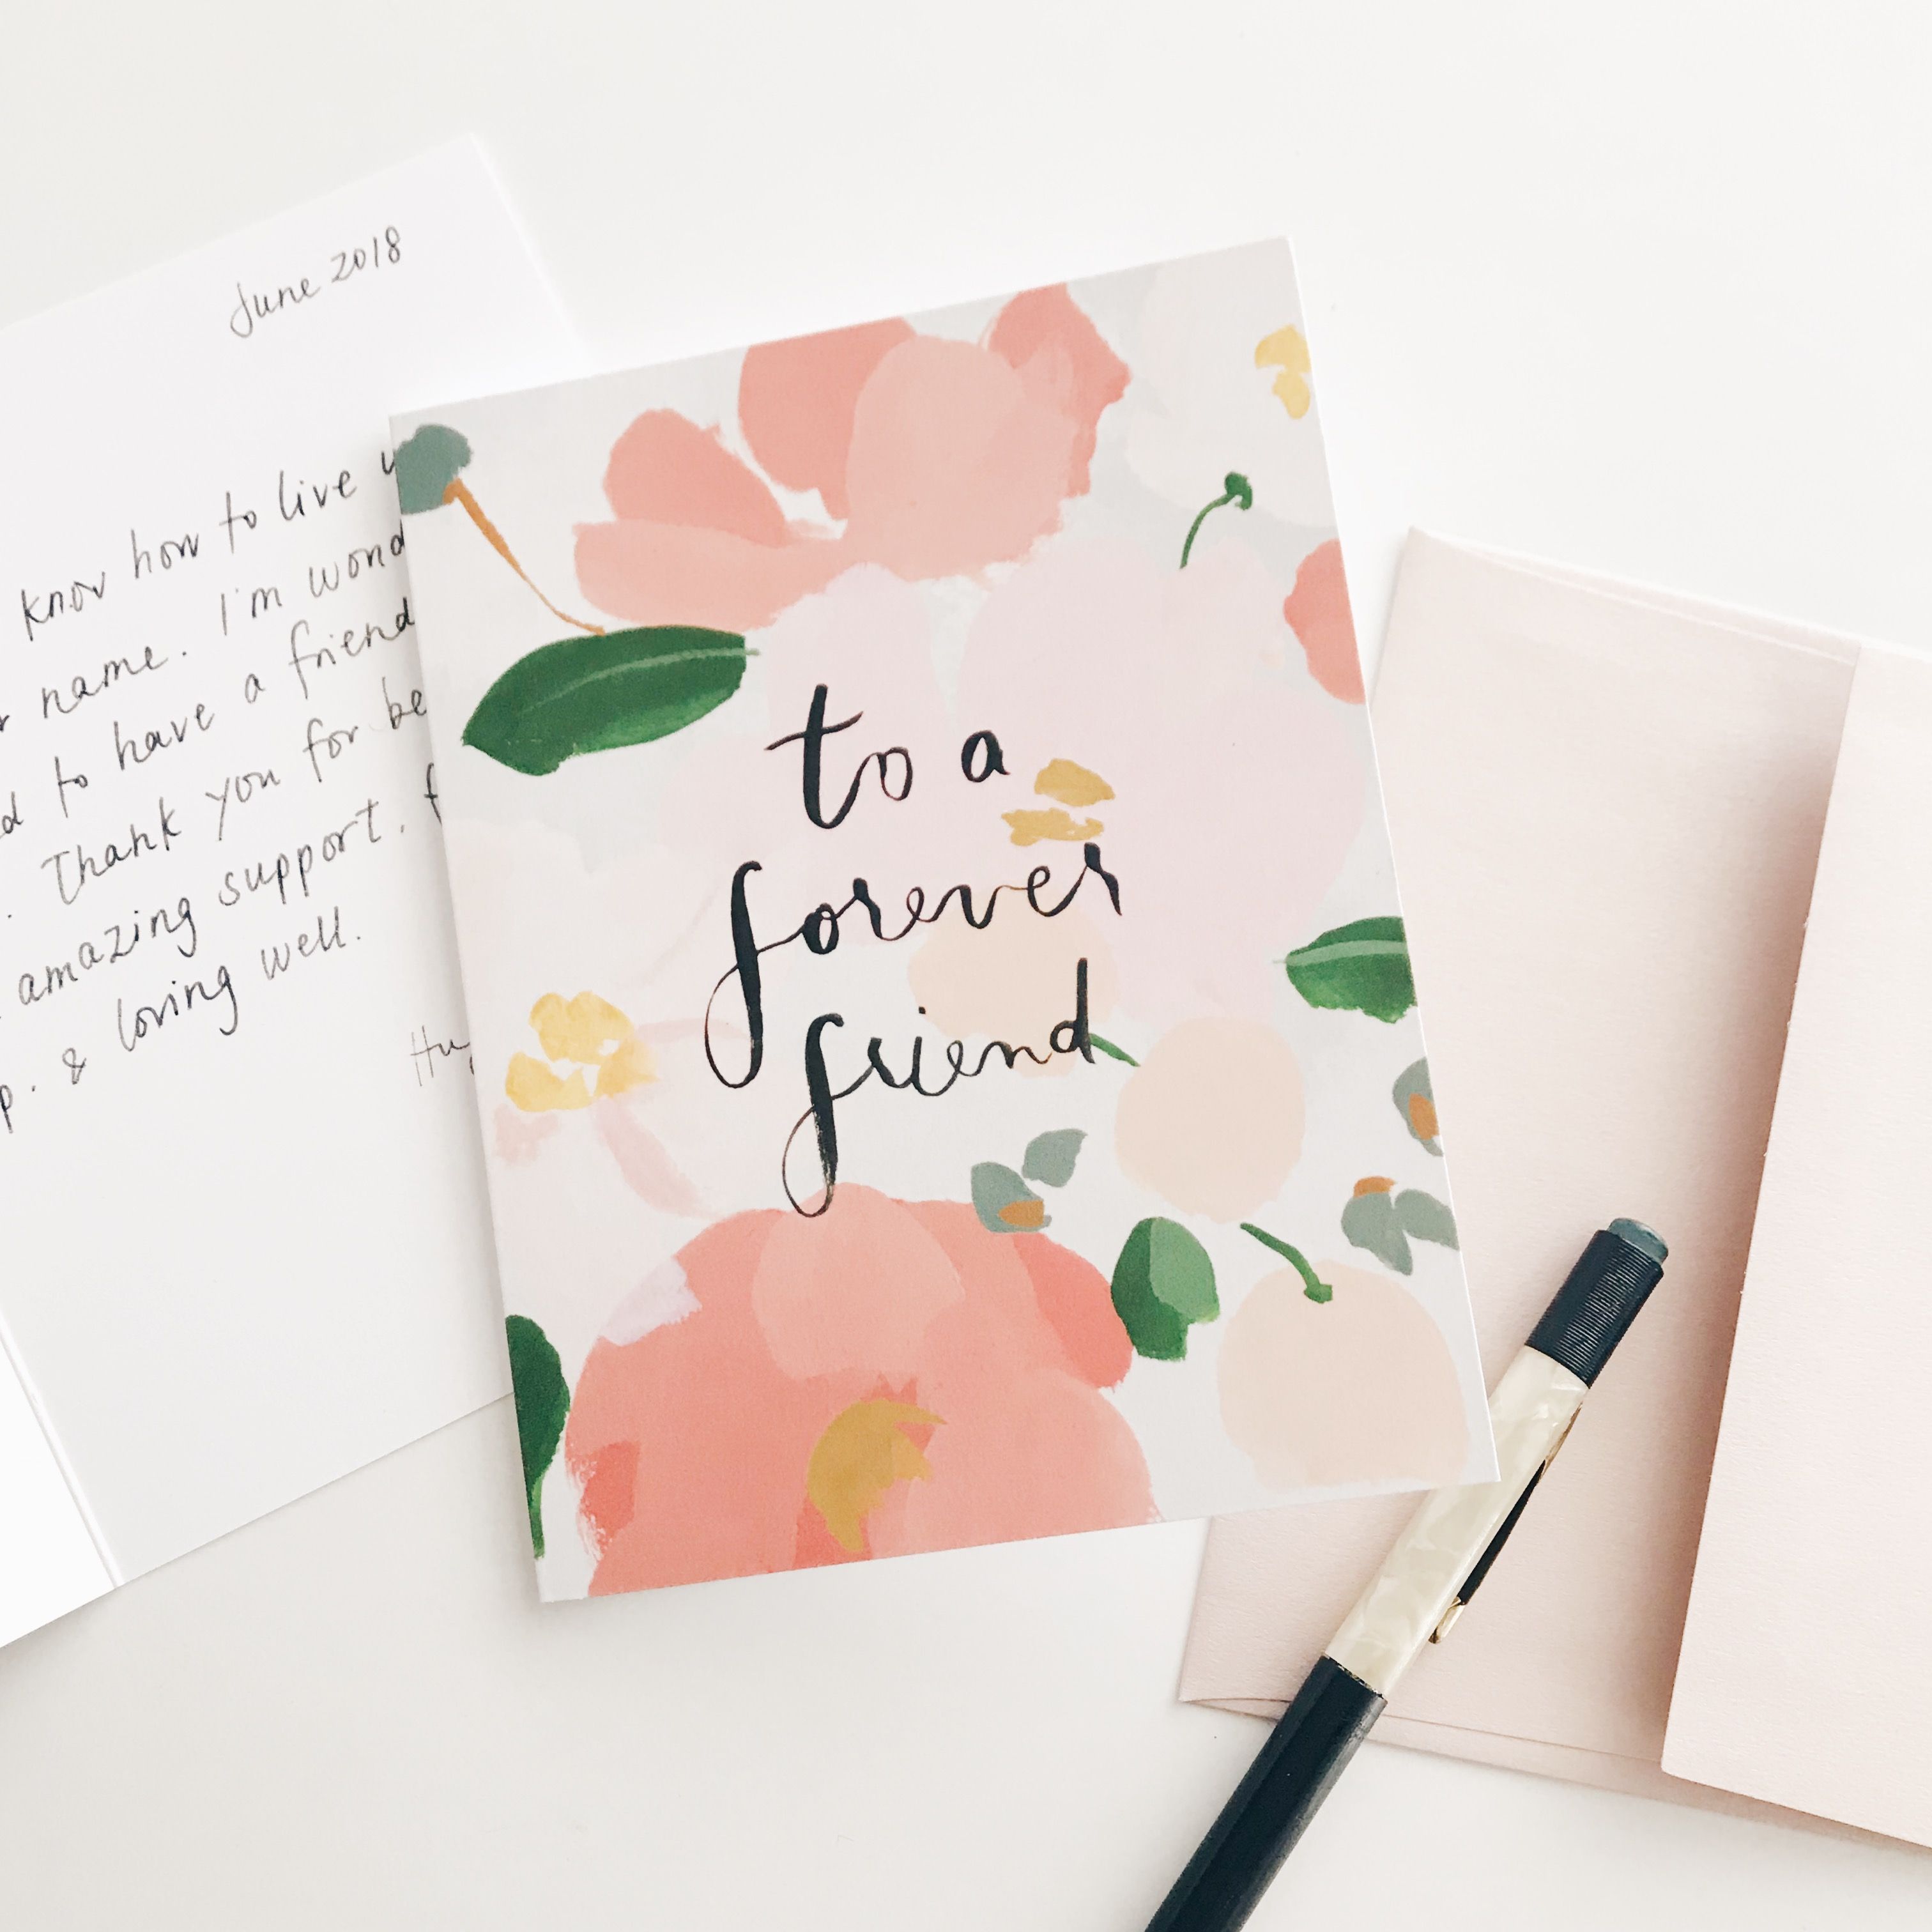 June 2018
know how to live
name. I'm wond
to have a friend
Thank you for be
amazing support.
& loving well.
to a
forever
friend